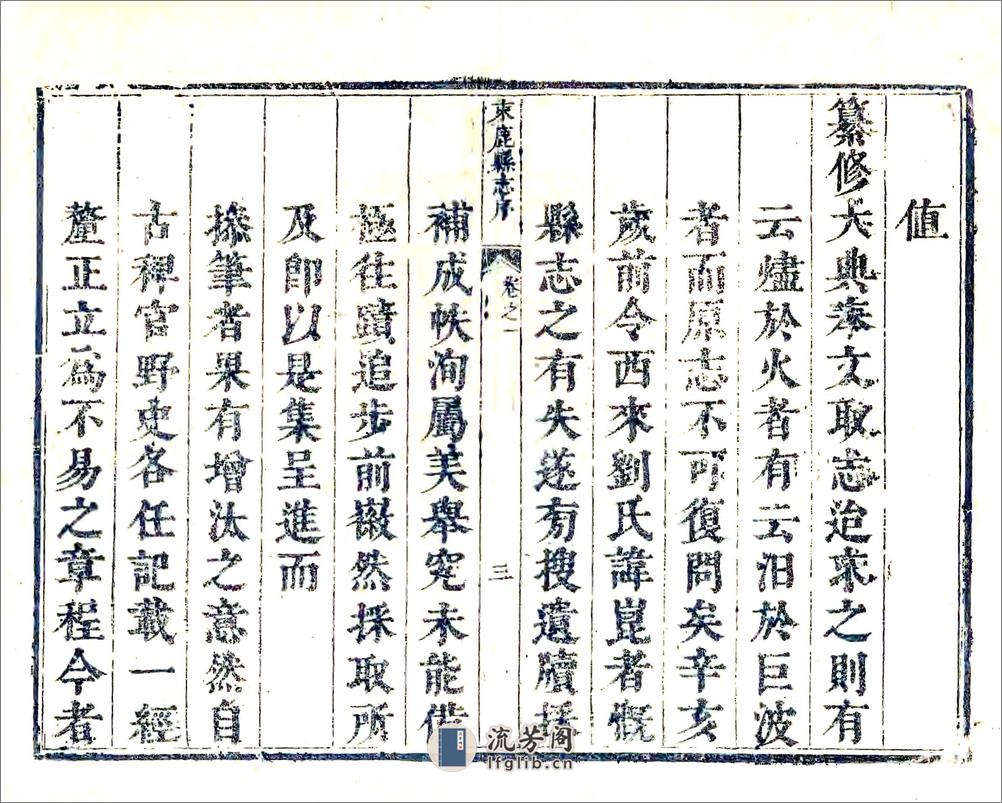 值
纂修大典奉文取志迨求之則有
云燼於火者有云汨於巨波
者而原志不可復問矣辛亥
歲前令西來劉氏諱崑者慨
縣志之有失遂有搜遺牘
束鹿縣志序 卷之一 三
補成帙洵屬美舉究未能備
極往蹟追步前徽然採取所
及卽以是集呈進而
操筆者果有增汰之意然自
古稗官野史各任記載一經
釐正立爲不易之章程今者
流芳阁
lfglib.cn